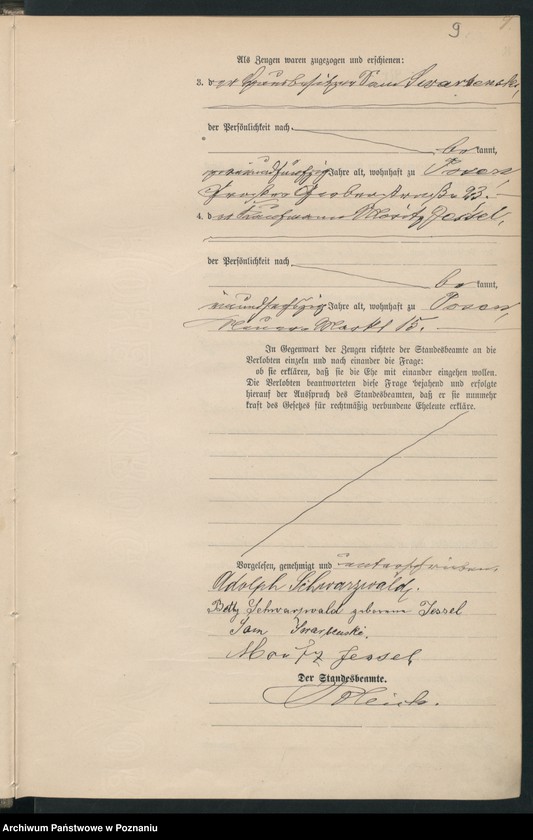 9
9
Als Zeugen waren zugezogen und erschienen:
3. der Hausbesitzer Sam Swarzenski,
der Persönlichkeit nach
bekannt,
undfünfzig Jahre alt, wohnhaft zu Posen,
Große Gerberstraße 23.
4. der Kaufmann Moritz Jessel,
der Persönlichkeit nach
bekannt,
undsechszig Jahre alt, wohnhaft zu Posen,
Neuer Markt 15.
In Gegenwart der Zeugen richtete der Standesbeamte an die
Verlobten einzeln und nach einander die Frage:
ob sie erklären, daß sie die Ehe mit einander eingehen wollen.
Die Verlobten beantworteten diese Frage bejahend und erfolgte
hierauf der Ausspruch des Standesbeamten, daß er sie nunmehr
kraft des Gesetzes für rechtmäßig verbundene Eheleute erkläre.
Vorgelesen, genehmigt und unterschrieben.
Adolph Schwarzwald.
Betty Schwarzwald geborene Jessel
Sam Swarzenski.
Moritz Jessel
Der Standesbeamte.
Archiwum Państwowe w Poznaniu